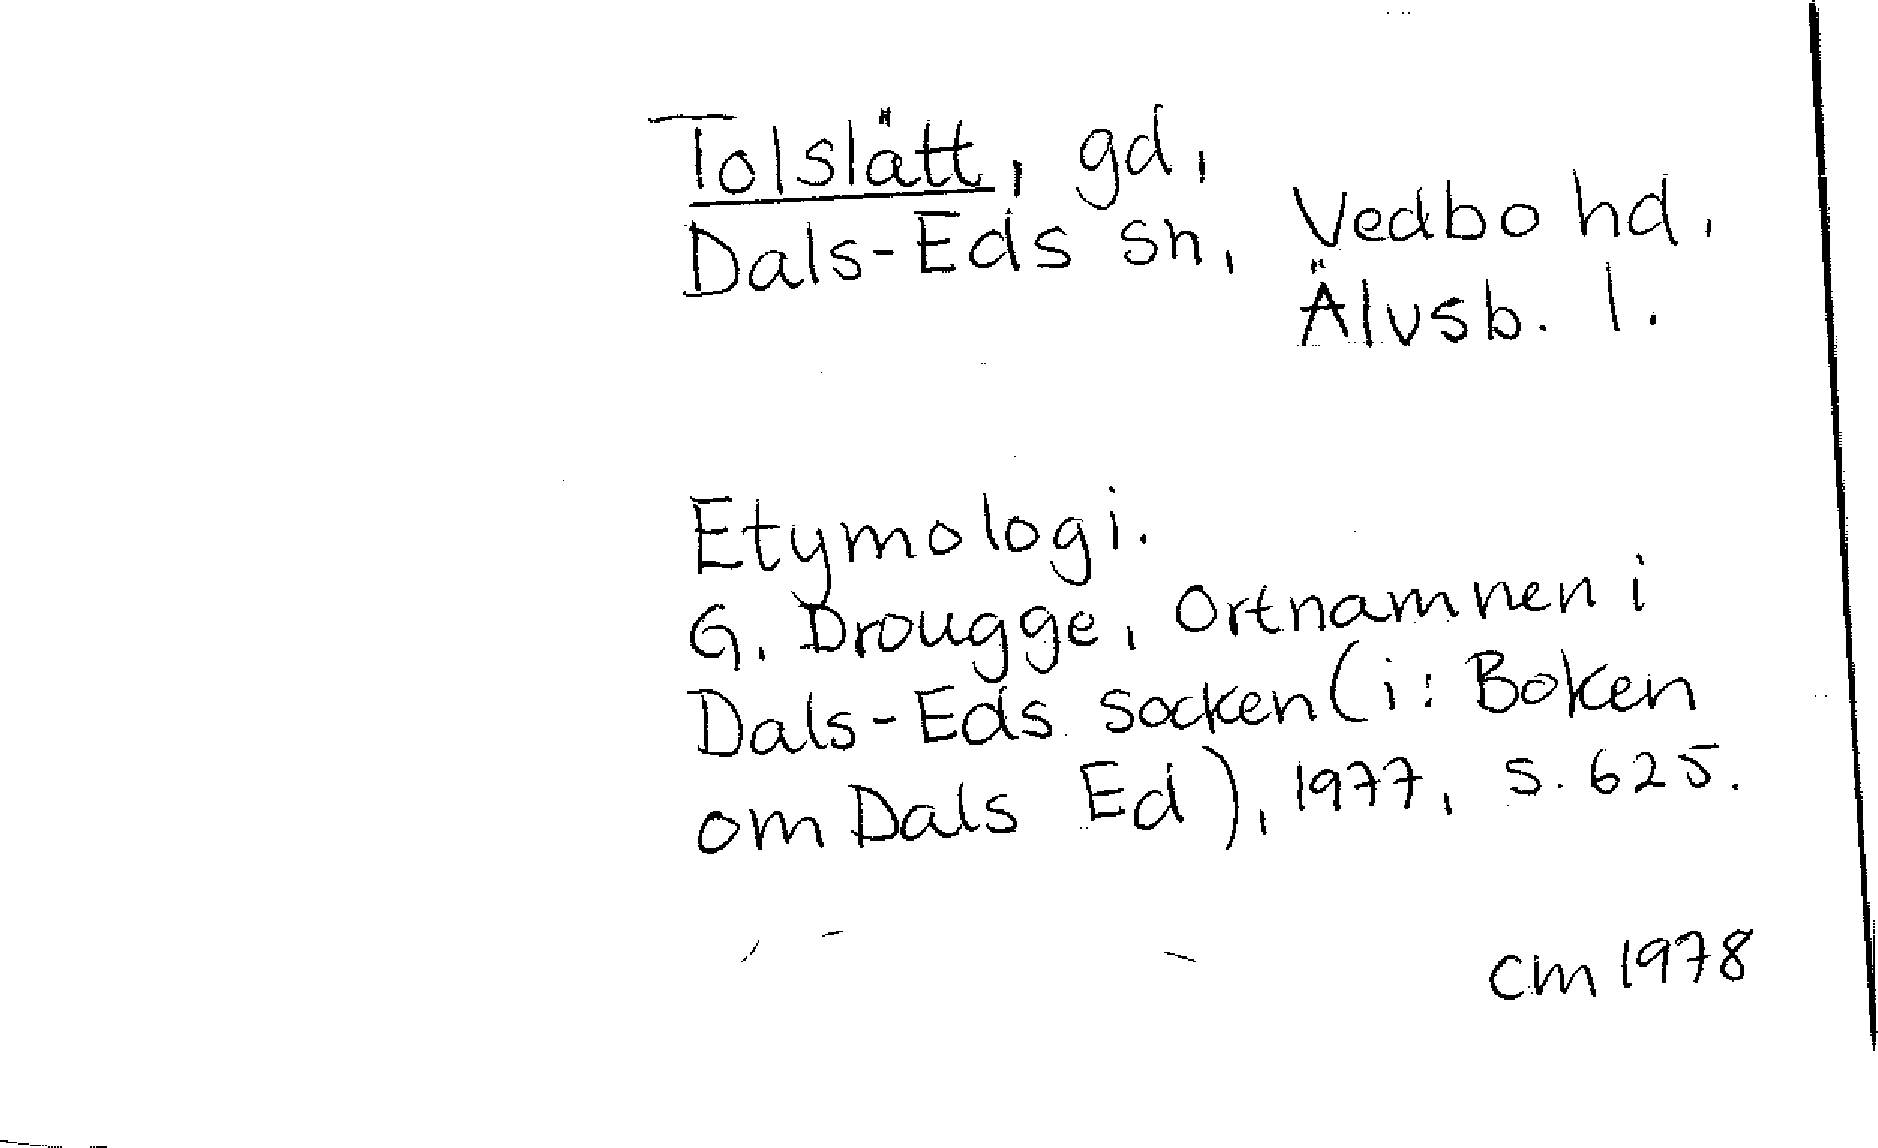 Tolslätt, gd,
Dals-Eds sn, Vedbo hd,
Älvsb. l.
Etymologi.
G. Drougge, Ortnamnen i
Dals-Eds socken (i: Boken
om Dals Ed), 1977, s. 625.
CM 1978